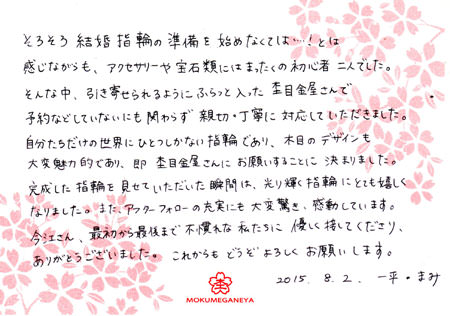 そろそろ結婚指輪の準備を始めなくては…!とは
感じながらも、アクセサリーや宝石類にはまったくの初心者二人でした。
そんな中、引き寄せられるようにふらっと入った杢目金屋さんで
予約などしていないにも関わらず親切・丁寧に対応していただきました。
自分たちだけの世界にひとつしかない指輪であり、木目のデザインも
大変魅力的であり、即杢目金屋さんにお願いすることに決まりました。
完成した指輪を見せていただいた瞬間は、光り輝く指輪にとても嬉しく
なりました。また、アフターフォローの充実にも大変驚き、感動しています。
今江さん、最初から最後まで不慣れな私たちに優しく接してくださり、
ありがとうございました。これからもどうぞよろしくお願いします。
2015. 8. 2. 一平・まみ
MOKUMEGANEYA